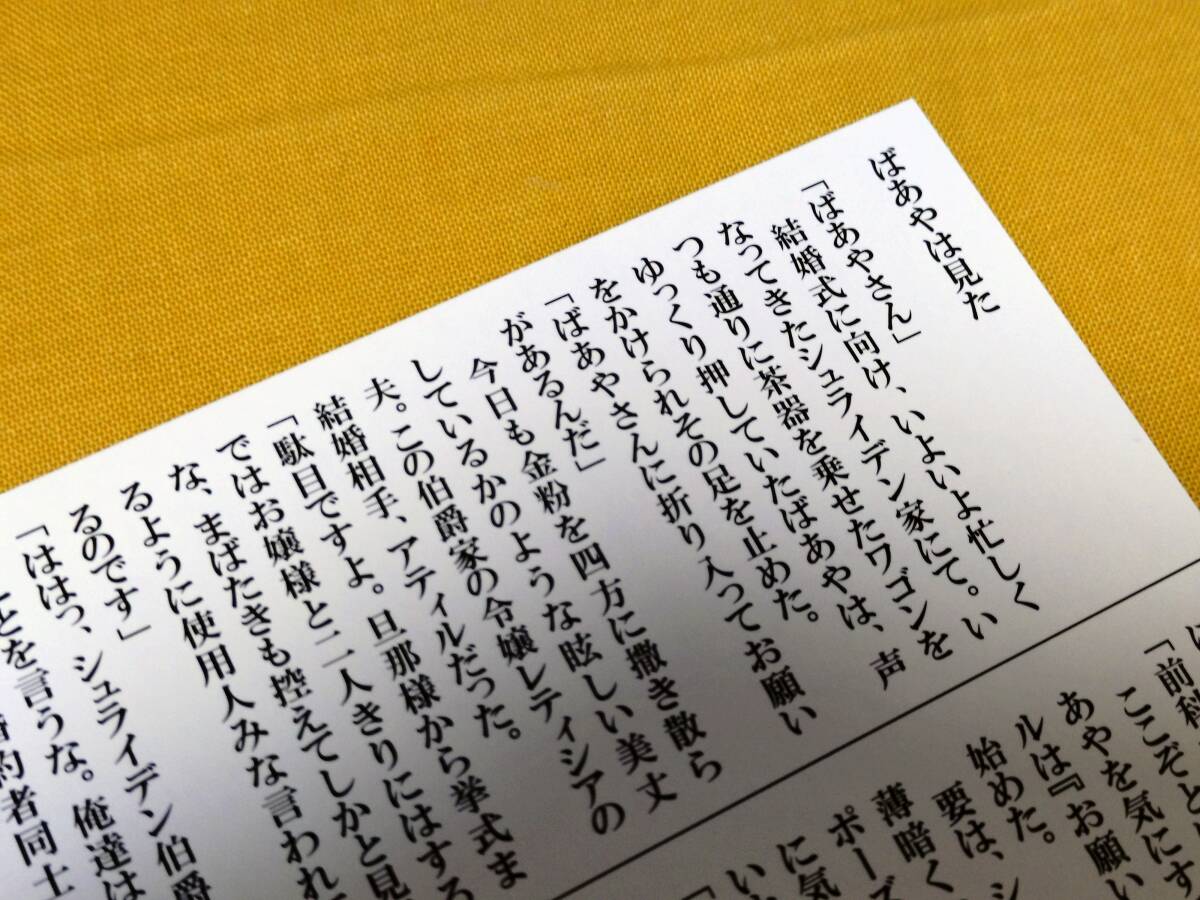 ばあやは見た
「ばあやさん」
結婚式に向け、いよいよ忙しく
なってきたシュライデン家にて。い
つも通りに茶器を乗せたワゴンを
ゆっくり押していたばあやは、声
をかけられその足を止めた。
「ばあやさんに折り入ってお願い
があるんだ」
今日も金粉を四方に撒き散ら
しているかのような眩しい美丈
夫。この伯爵家の令嬢レティシアの
結婚相手、アティルだった。
「駄目ですよ。旦那様から挙式ま
ではお嬢様と二人きりにはする
な、まばたきも控えてしかと見
るように使用人みな言われて
るのです」
「ははっ、シュライデン伯爵
とを言うな。俺達は
約者同士
「前科
ここぞと
あやを気にす
ルは『お願い
始めた。
要は、シ
薄暗く
ポーズ
に気
い
「